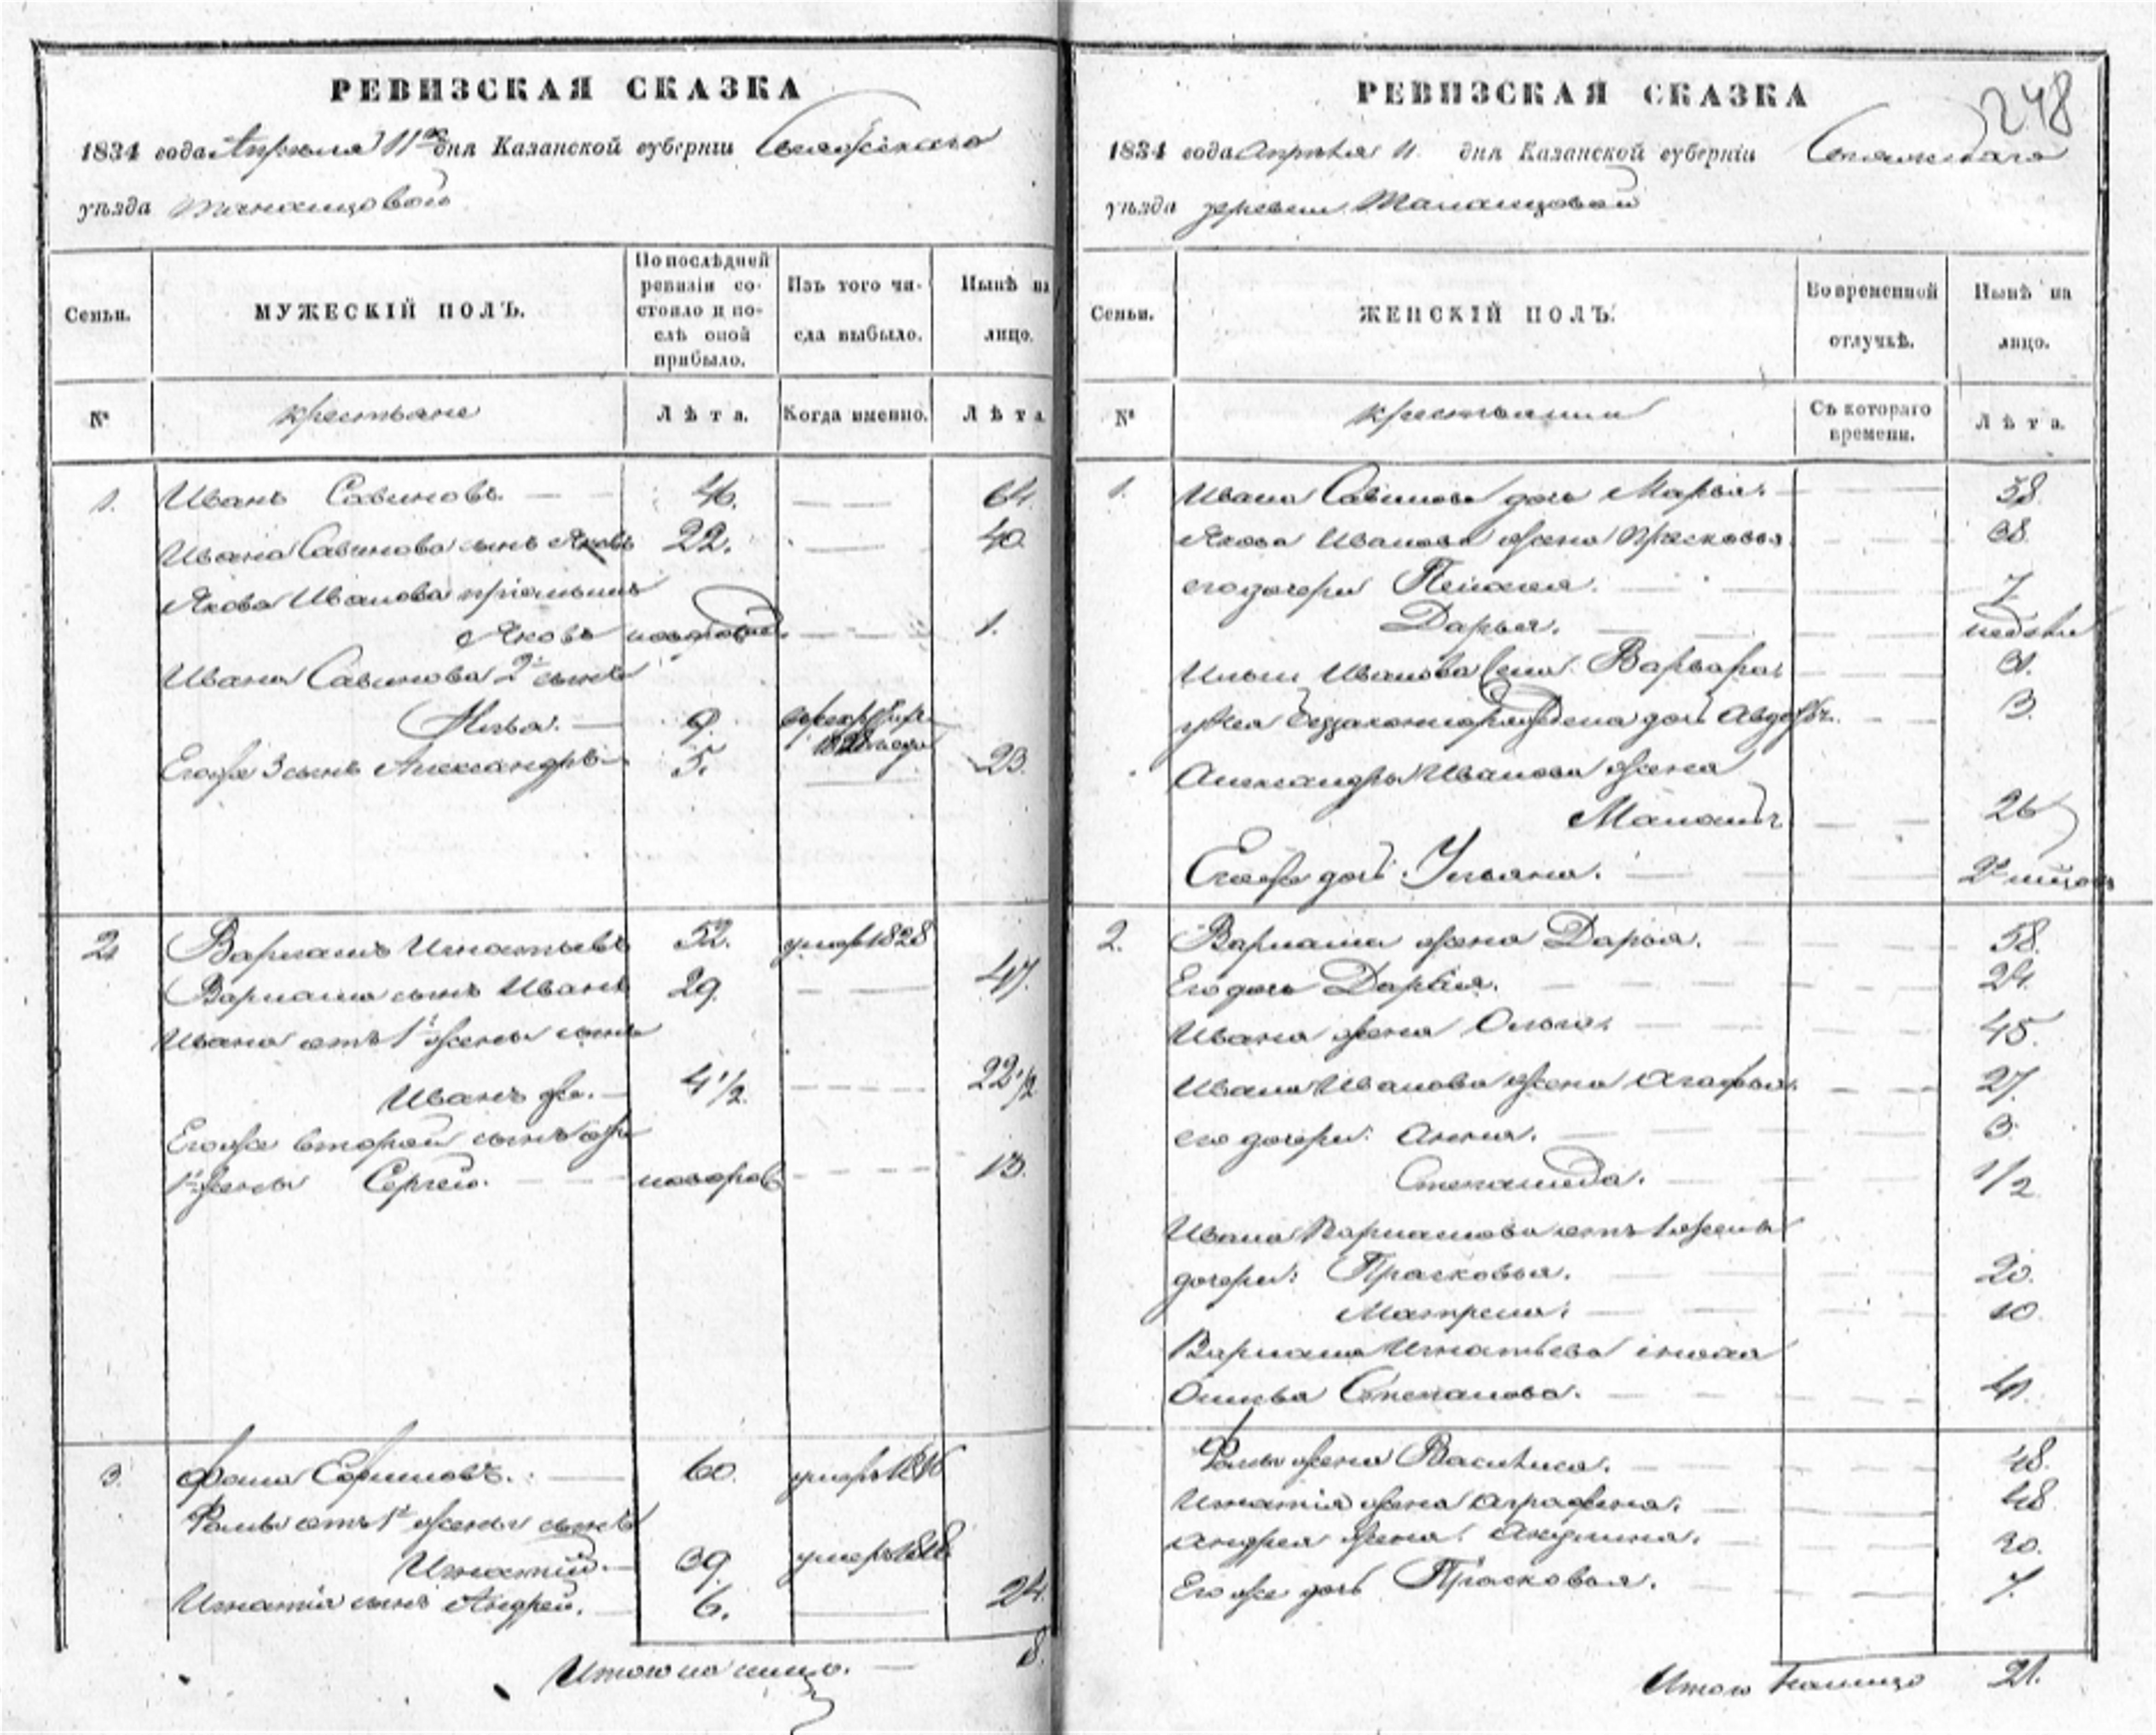 РЕВИЗСКАЯ СКАЗКА
1834 года Апреля 11 дня Казанской губерніи Свіяжскаго
уѣзда
МУЖЕСКІЙ ПОЛЪ.
Семьи.
По послѣдней ревизіи состояло и послѣ оной прибыло.
Изъ того числа выбыло.
Нынѣ на лицо.
№
крестьяне
Лѣта.
Когда именно.
Лѣта
1. Иванъ Савиновъ. 46. 64.
Ивана Савинова сынъ Яковъ 22. 40
Якова Иванова пріемышъ
Яковъ новорожд. 1.
Ивана Савинова 2й сынъ
Илья. 9.
Егоже 3 сынъ Александръ 5. 23.
2 Варламъ Игнатьевъ 52. умер 1828
Варлама сынъ Иванъ 29. 47.
Ивана отъ 1й жены сынъ
Иванъ же. 4 1/2 22 1/2
Егоже второй сынъ
1й жены Сергей. новорож 13.
3. Фома Ефимовъ. 60. умеръ
Фомы отъ 1й жены сынъ
Игнатій. 39. умеръ
Игнатія сынъ Андрей. 6. 24.
Итого на лицо. 8.
248
РЕВИЗСКАЯ СКАЗКА
1834 года апреля 11. дня Казанской губерніи Свіяжскаго
уѣзда деревни
Семьи.
ЖЕНСКІЙ ПОЛЪ.
Во временной отлучкѣ.
Нынѣ на лицо.
№
Съ котораго времени.
Лѣта.
1. Ивана Савинова дочь Марья. 38.
Якова Иванова жена Прасковья. 38.
его дочери Пелагея. 7
Дарья. недели
Ильи Иванова жена Варвара
у нея незаконнорожденна дочь 3.
Александра Иванова жена
26
Егоже дочь Ульяна.
2. Варлама жена Дарья. 58.
Его дочь Дарья. 24.
Ивана жена Ольга. 45.
Ивана Иванова жена Агафья. 27.
его дочери: Анна. 3.
Степанида. 1/2
Ивана Варламова отъ 1 жены
дочери: Прасковья. 20.
Матрена. 10
Варлама Игнатьева сноха
Степанова.
Фомы жена Василиса. 48.
Игнатія жена Аграфена. 48.
Андрея жена Акулина.
Егоже дочь Прасковья. 7.
Итого налицо 21.